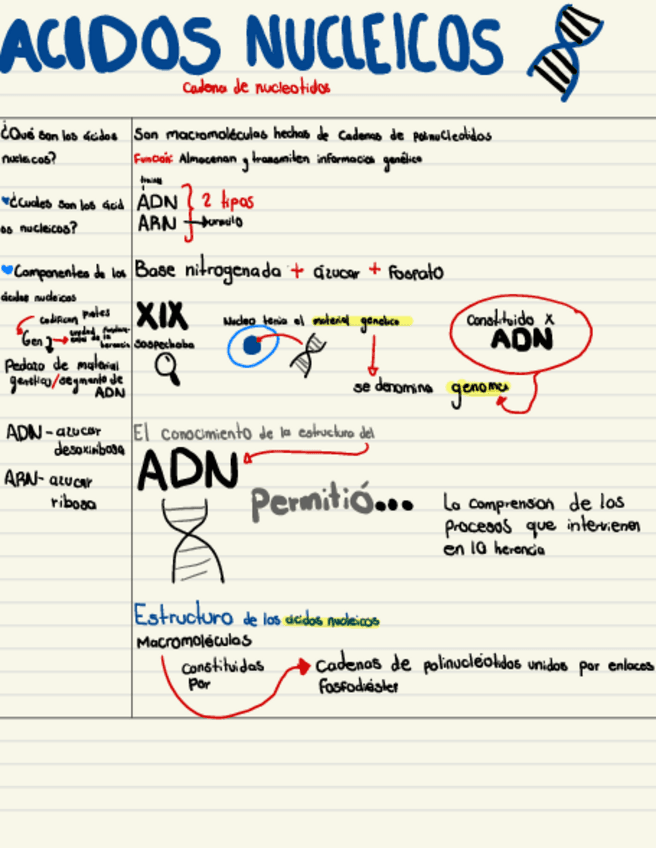 ACIDOS NUCLEICOS
Cadena de nucleotidos
¿Qué son los ácidos
nucleicos?
Son macromoléculas hechas de cadenas de polinucleotidos
Función: Almacenan y transmiten informacion genética
¿Cuales son los ácid
os nucleicos?
ADN
ARN
2 tipos
Componentes de los
ácidos nucleicos
Base nitrogenada + azucar + Fosfato
codifican
Gen
Pedazo de material
genetico/segmento de
ADN
XIX
sospechaba
Nucleo tenia el material genetico
se denomina genoma
Constituido x
ADN
ADN-azucar
desoxiribosa
ARN-azucar
ribosa
El conocimiento de la estructura del
ADN
Permitió...
La comprension de los
procesos que intervienen
en la herencia
Estructura de los ácidos nucleicos
Macromoléculas
Constituidas
por
Cadenas de polinucleótidos unidos por enlaces
Fosfodiéster